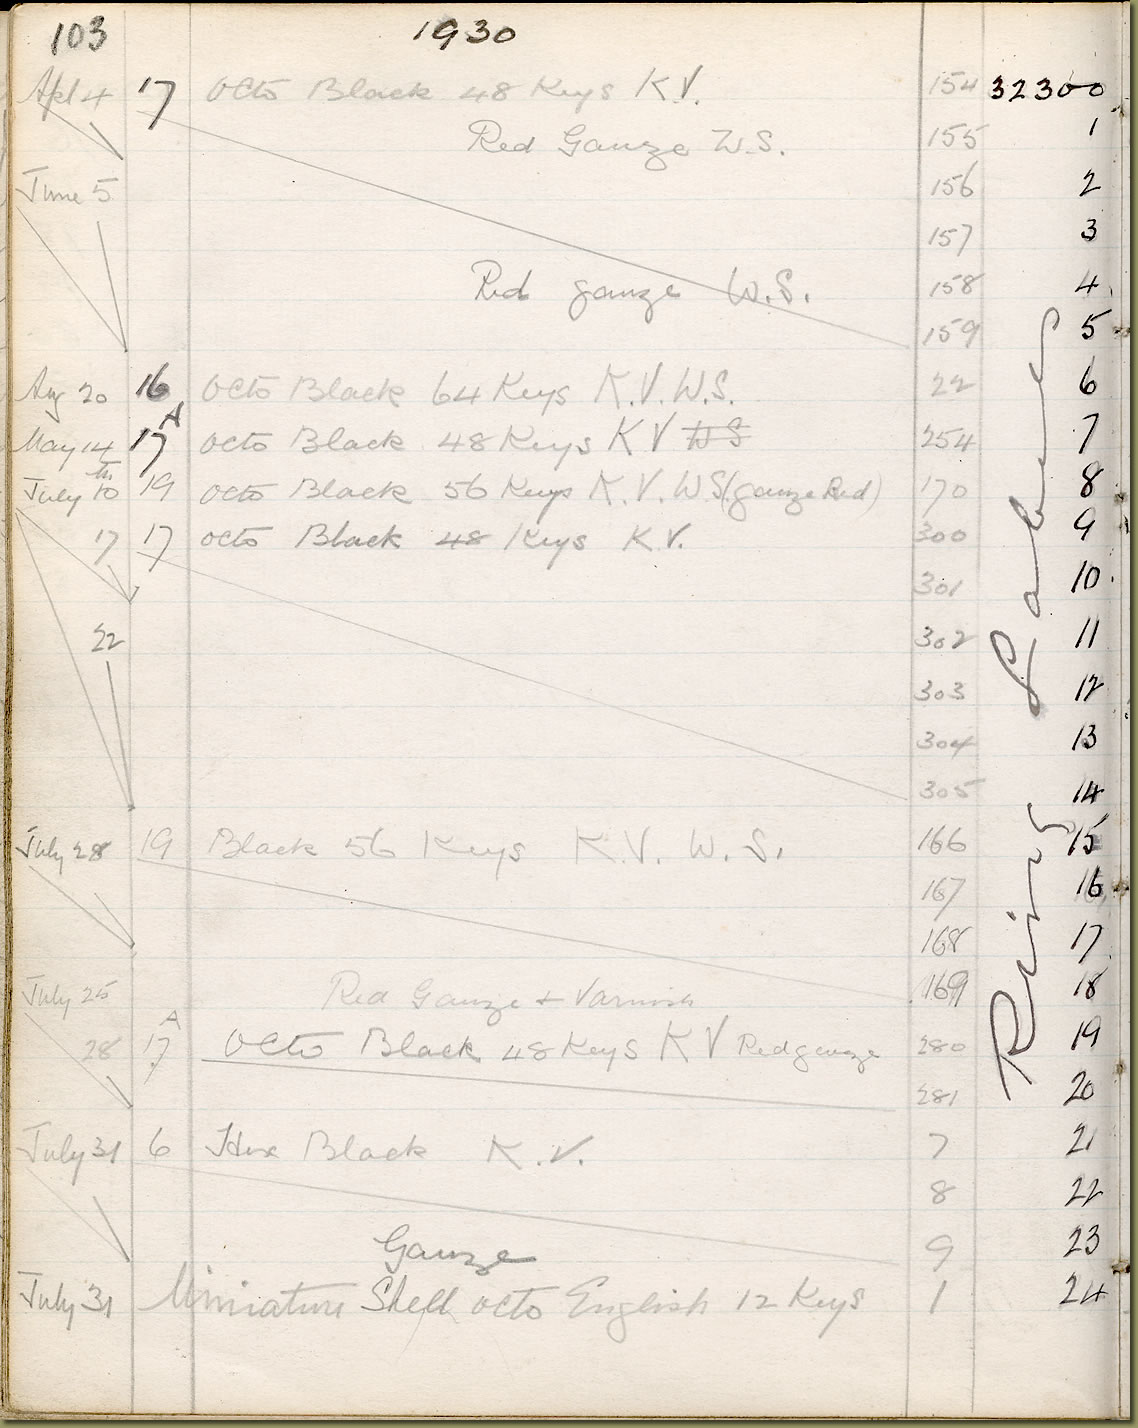 103 1930
Apl 4 17 Octo Black 48 Keys K.V. 154 32300
Red Gauze W.S. 155 1
June 5 156 2
157 3
Red gauze W.S. 158 4
159 5
Aug 20 16 Octo Black 64 Keys K.V. W.S. 22 6
May 14 17A Octo Black 48 Keys K V W S 254 7
July 10th 19 Octo Black 56 Keys K.V. W.S (gauze Red) 170 8
17 17 Octo Black 48 Keys K.V. 300 9
301 10
22 302 11
303 12
304 13
305 14
July 28 19 Black 56 Keys K.V. W.S. 166 15
167 16
168 17
July 25 Red Gauze + Varnish 169 18
28 17A Octo Black 48 Keys K V Red gauze 280 19
281 20
July 31 6 Hex Black K.V. 7 21
8 22
Gauze 9 23
July 31 Miniature Shell Octo English 12 Keys 1 24